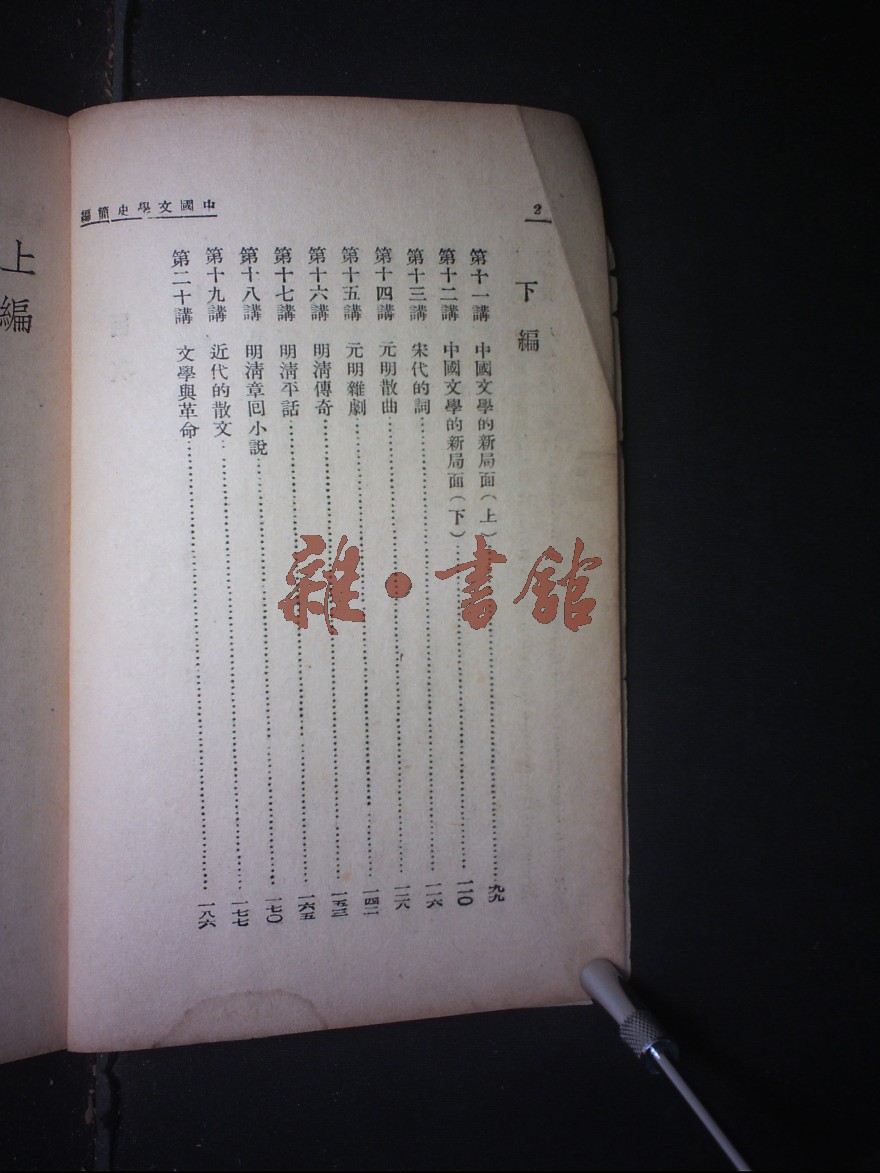 中國文學史簡編
2
下編
第十一講 中國文學的新局面(上)……九九
第十二講 中國文學的新局面(下)……一一〇
第十三講 宋代的詞……一一六
第十四講 元明散曲……一二八
第十五講 元明雜劇……一四二
第十六講 明清傳奇……一五三
第十七講 明清平話……一六五
第十八講 明清章回小說……一七〇
第十九講 近代的散文……一七七
第二十講 文學與革命……一八六
上編
雜·書館